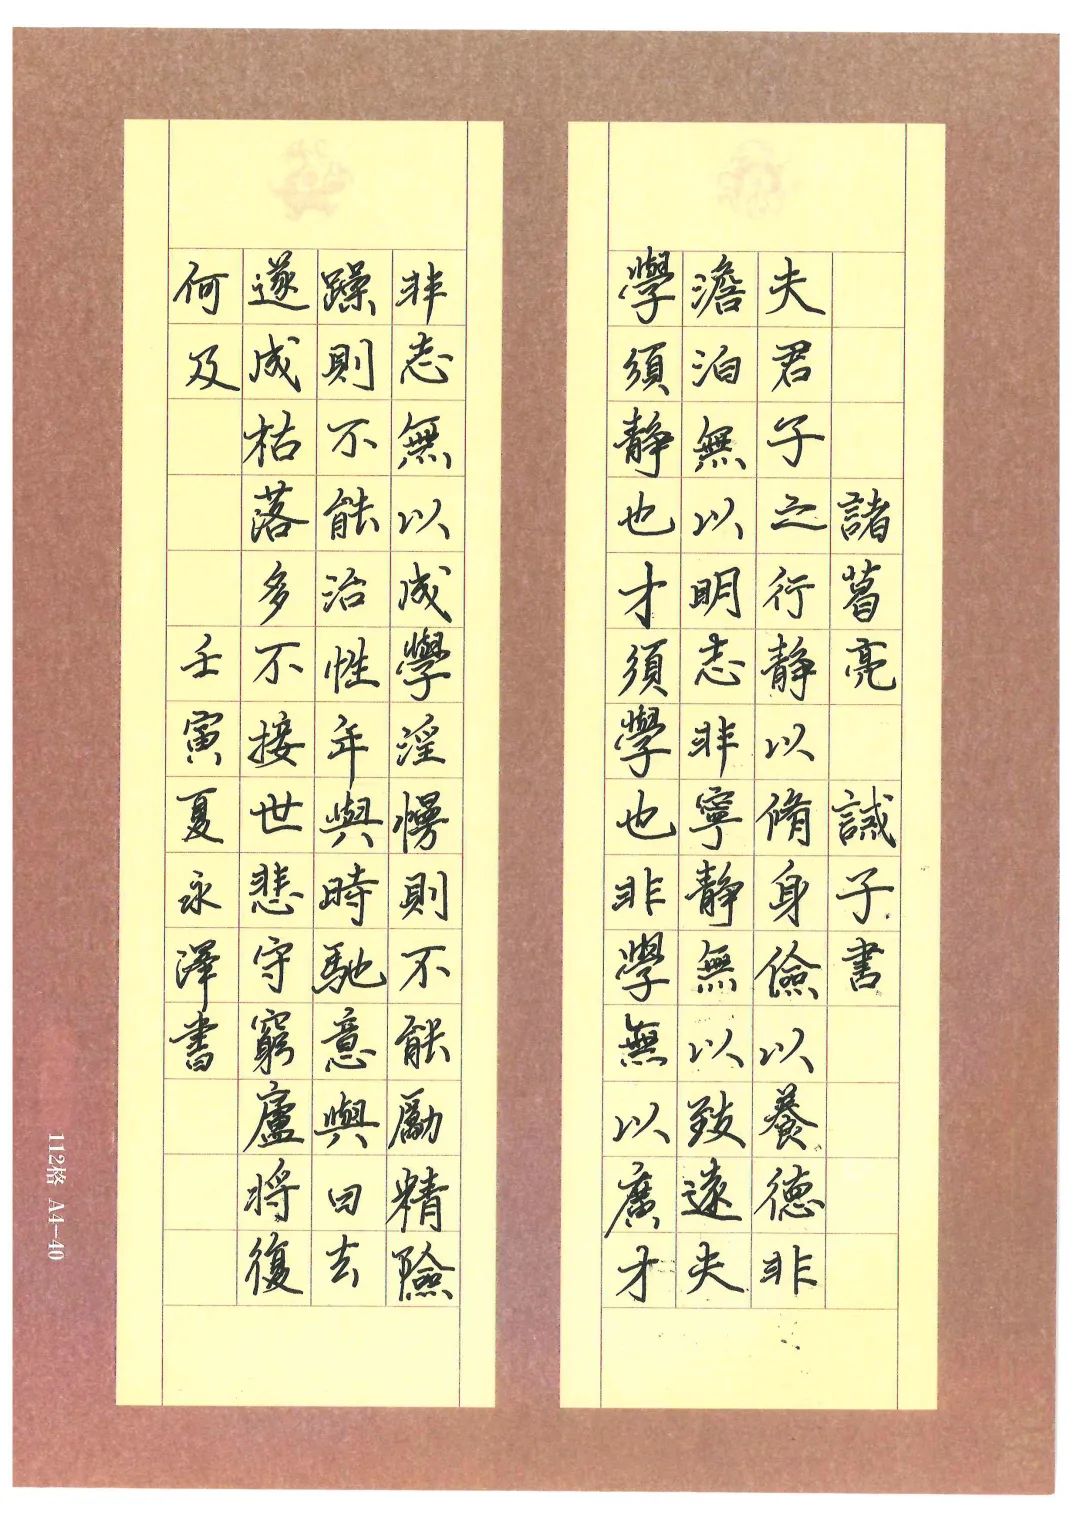 諸葛亮 誡子書
夫君子之行静以脩身儉以養德非
澹泊無以明志非寧静無以致遠夫
學須静也才須學也非學無以廣才
非志無以成學淫慢則不能勵精險
躁則不能治性年與時馳意與日去
遂成枯落多不接世悲守窮廬將復
何及
壬寅夏永澤書
112格 A4-40